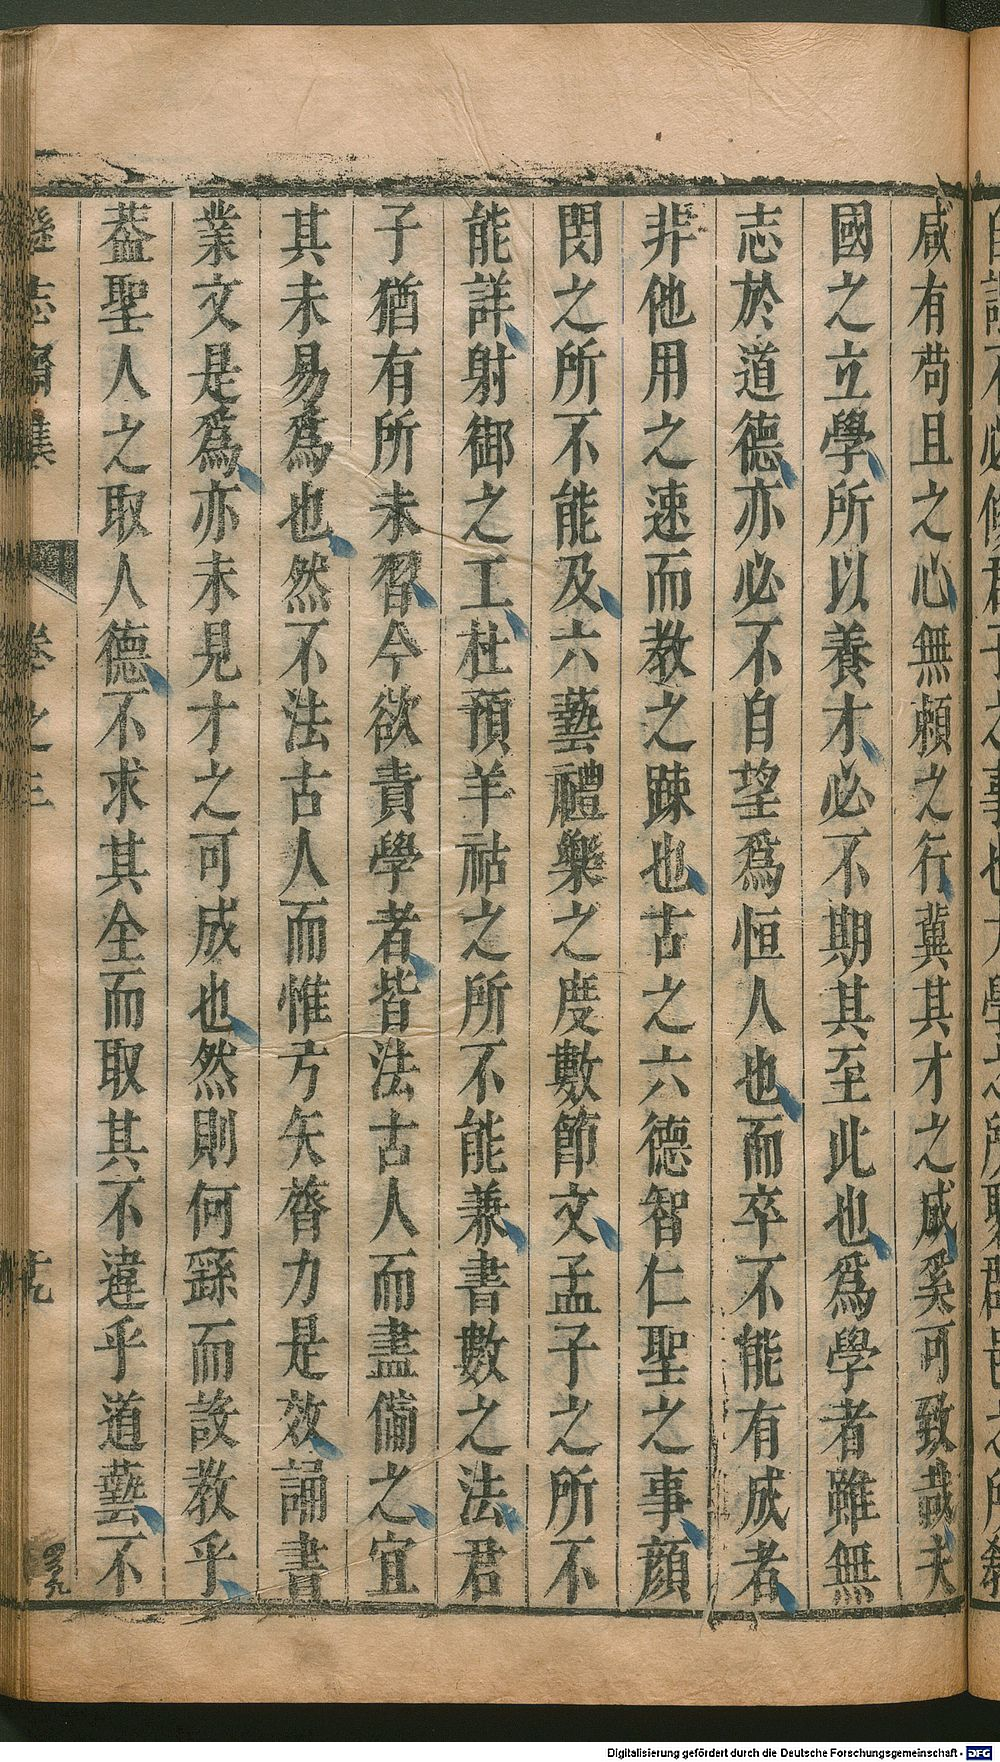 咸有苟且之心無頼之行冀其才之咸奚可致哉夫
國之立學所以養才必不期其至此也爲學者雖無
志於道德亦必不自望爲恒人也而卒不能有成者
非他用之速而教之踈也古之六德智仁聖之事顔
閔之所不能及六藝禮樂之度數節文孟子之所不
能詳射御之工杜預羊祜之所不能兼書數之法君
子猶有所未習今欲責學者皆法古人而盡備之宜
其未易爲也然不法古人而惟弓矢膂力是效誦書
業文是爲亦未見才之可成也然則何繇而設教乎
葢聖人之取人德不求其全而取其不違乎道藝不
遜志齋集 卷之三 十九
Digitalisierung gefördert durch die Deutsche Forschungsgemeinschaft - DFG